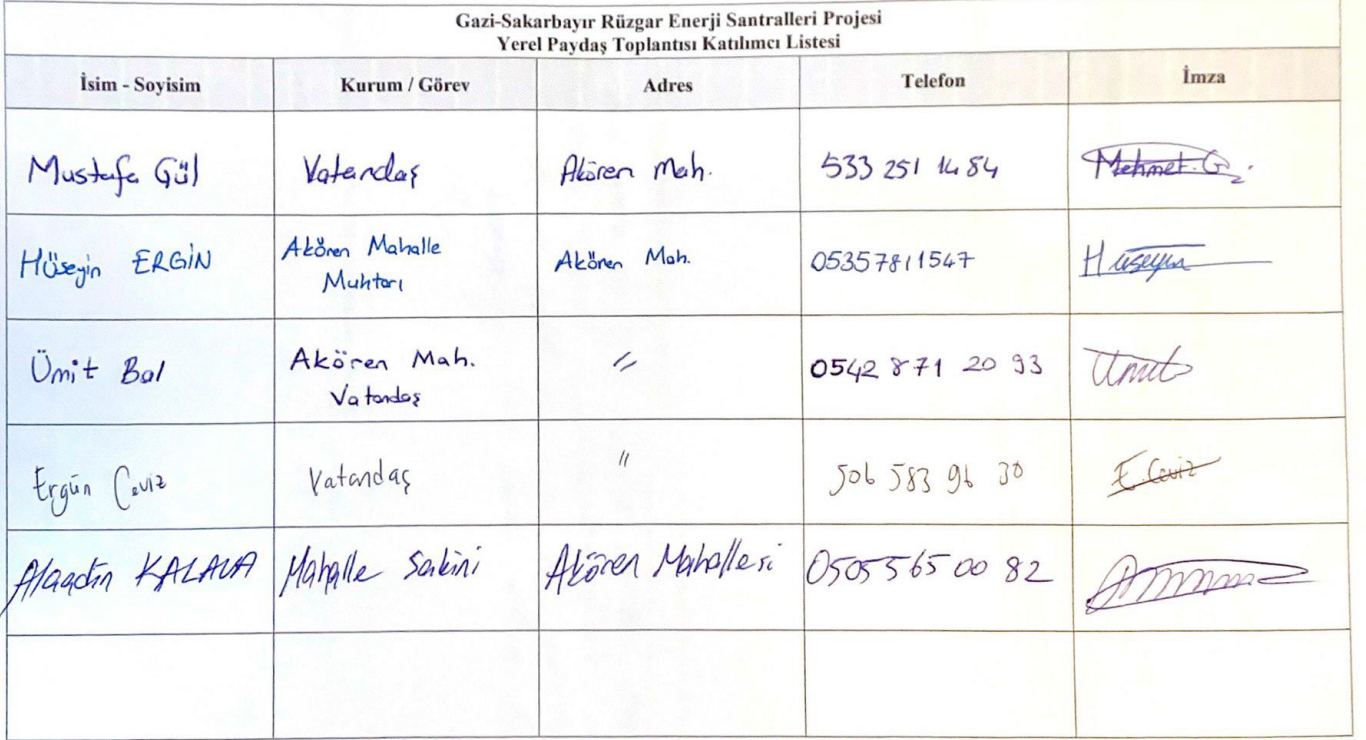 Gazi-Sakarbayır Rüzgar Enerji Santralleri Projesi
Yerel Paydaş Toplantısı Katılımcı Listesi
İsim - Soyisim Kurum / Görev Adres Telefon İmza
Mustafa Gül Vatandaş Akören Mah. 533 251 14 84 Mehmet. G
Hüseyin ERGİN Akören Mahalle Muhtarı Akören Mah. 05357811547 Hüseyin
Ümit Bal Akören Mah. Vatandaş " 0542 871 20 93 Ümit
Ergün Ceviz Vatandaş " 506 583 96 30 E. Ceviz
Alaadin Mahalle Sakini Akören Mahallesi 0505 565 00 82